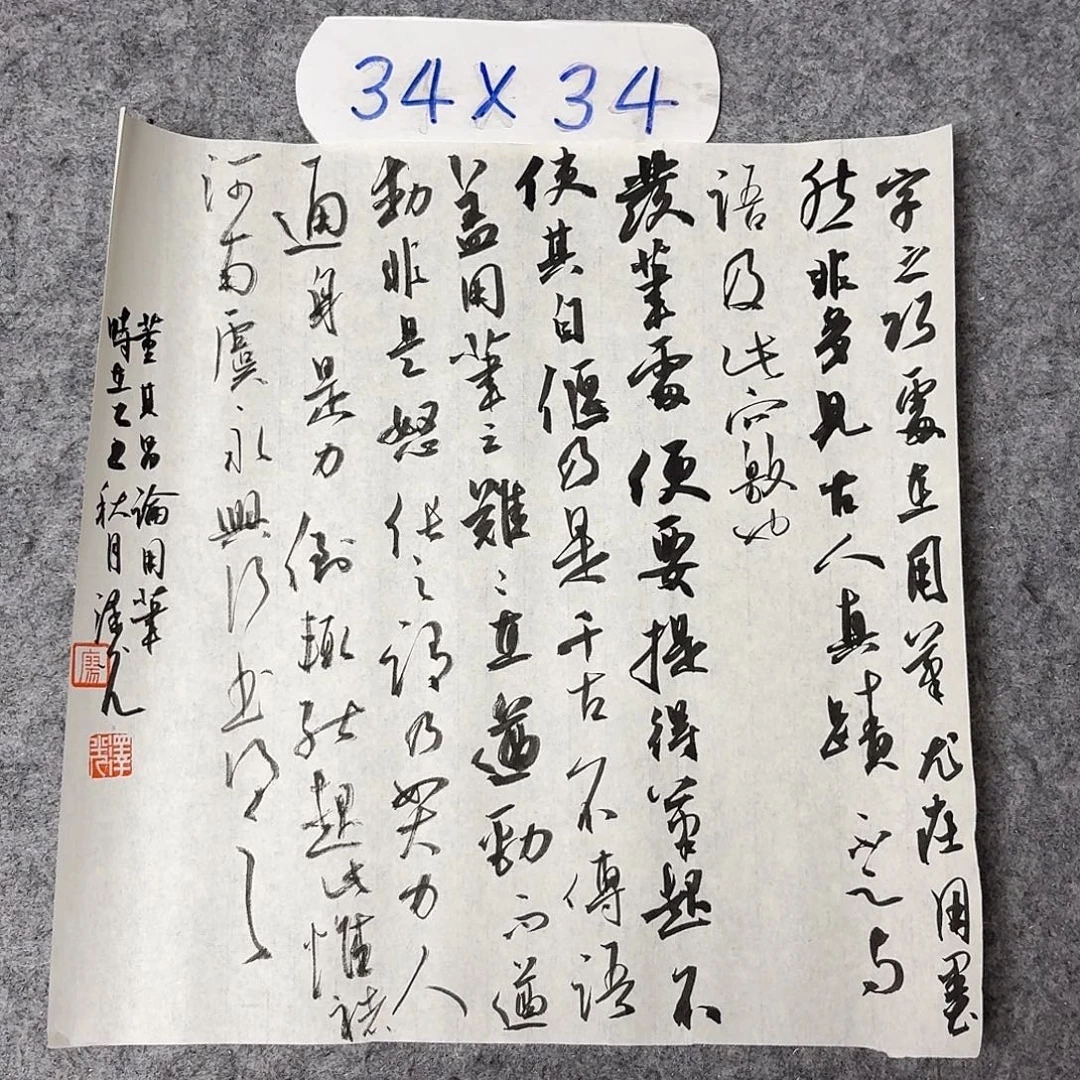 34×34
字之巧處在用筆尤在用墨
然非多見古人真蹟不足與
語及此竅也
發筆處便要提得筆起不
使其自偃乃是千古不傳語
蓋用筆之難〻在遒勁而遒
勁非是怒之謂乃如大力人
通身是力倒輒能起此惟褚
河南虞永興行書得之
董其昌論用筆
時在乙丑秋月澤光
廖
澤光